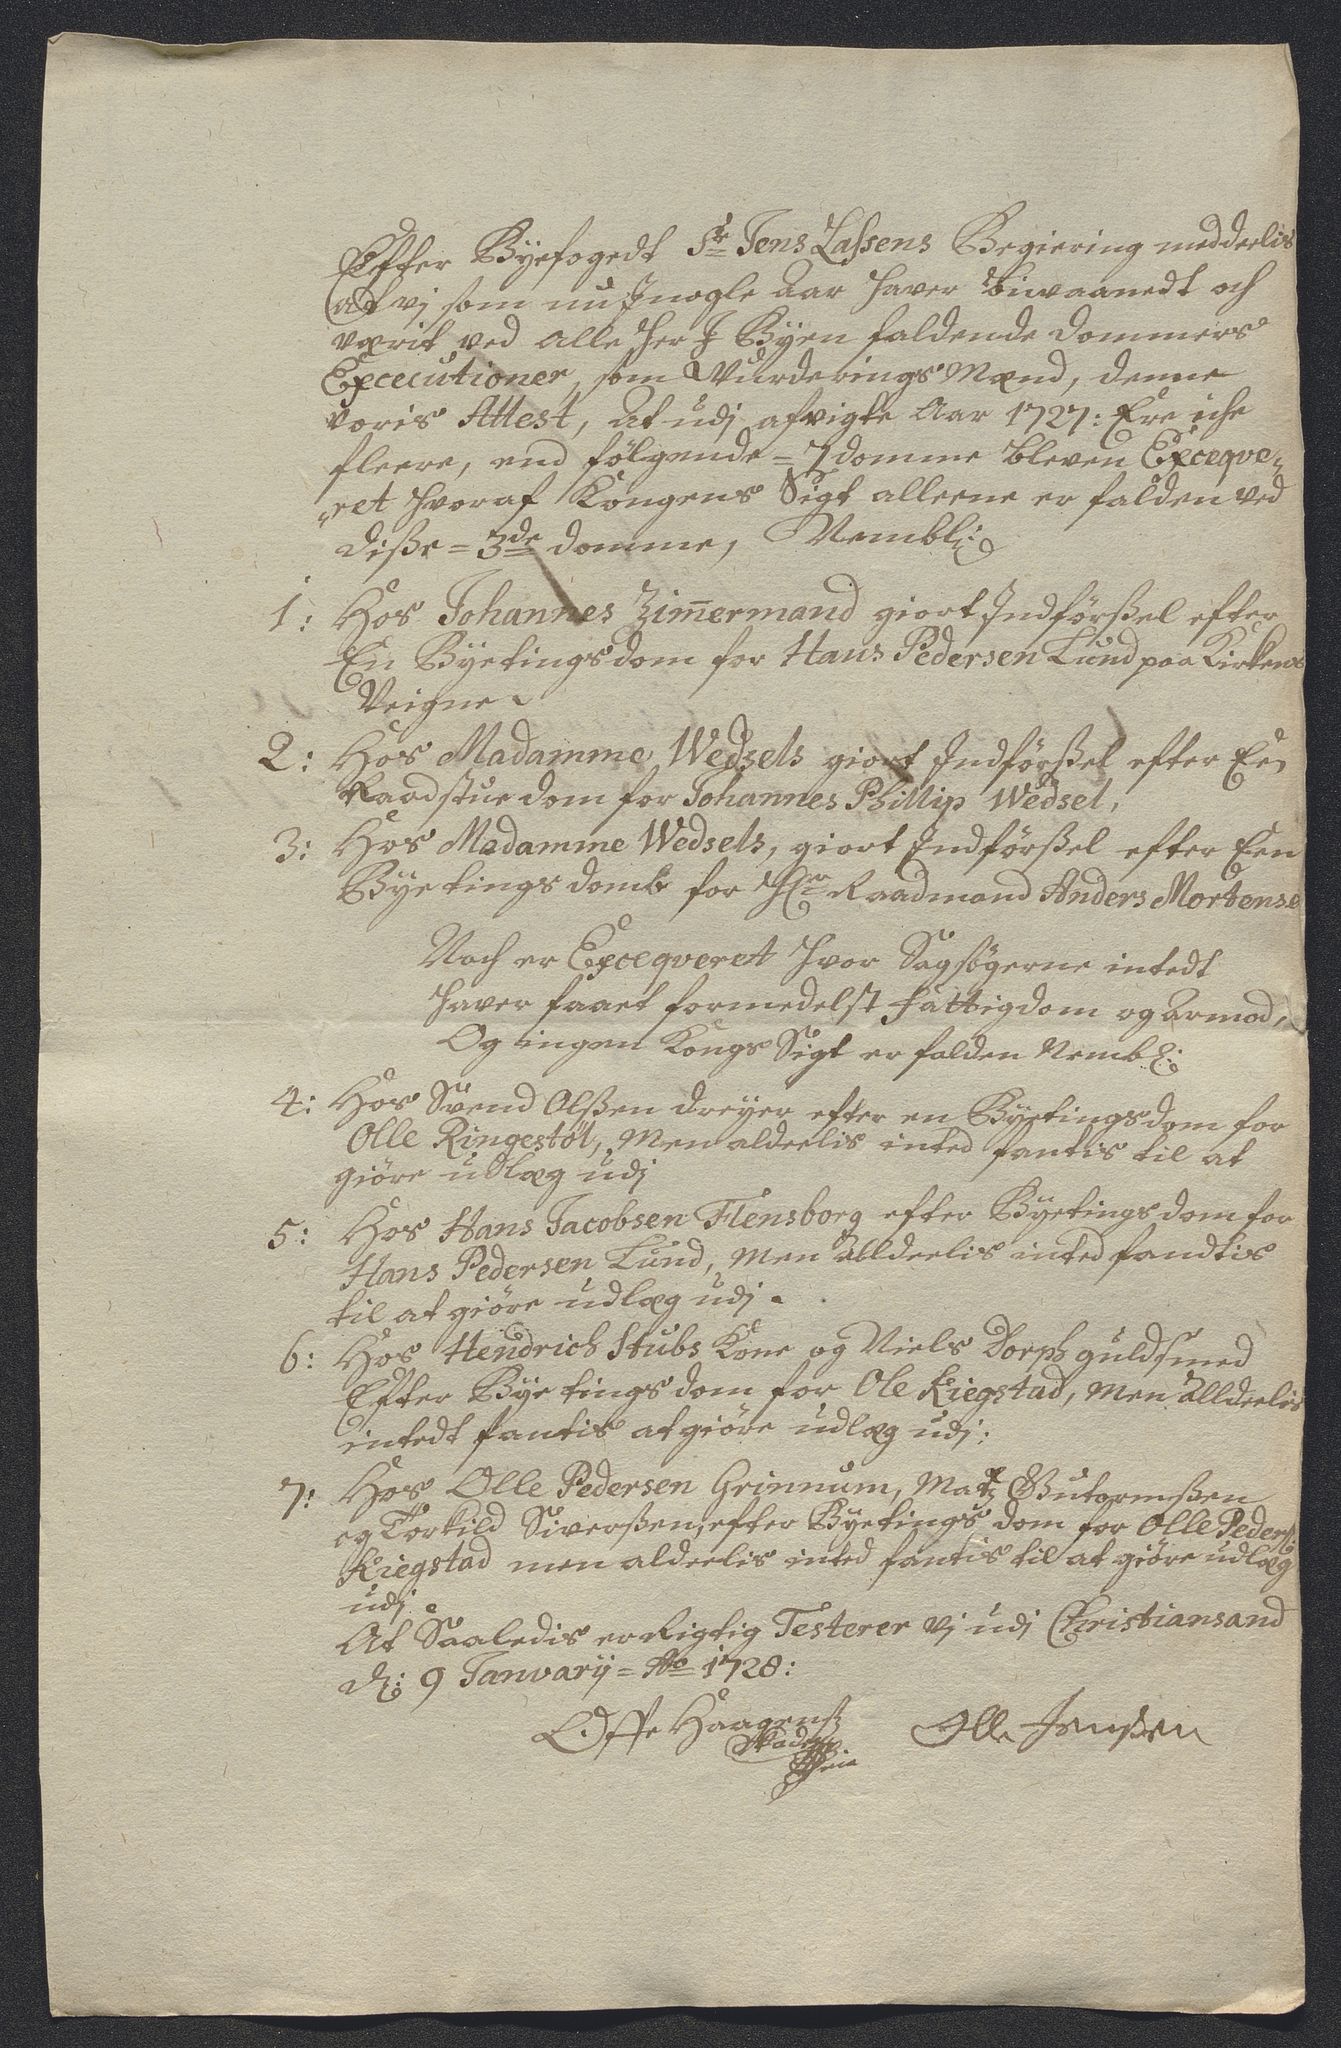 Efter Byefogedt Sr Jens Lassens Begiering meddeelis
at vj som nu Jnogle Aar haver biwaanedt och
værit ved alle her J Byen faldende Dommers
Excecutioner, som Wurderings Mænd, denne
voris Attest, At udj afvigte Aar 1727: Ere iche
fleere, end fölgende = 7 domme bleven Exceqve-
"ret hvoraf Kongens Sigt alleene er falden ved
disse = 3de domme, Nembl:
1: Hos Johannes Zimmermand giort Indförssel efter
En Byetingsdom for Hans Pedersen Lund paa Kirkens
Veigne
2: Hos Madamme Wedsels giort Indförssel efter Een
Raadstue dom for Johannes Phillip Wedsel,
3: Hos Madamme Wedsels, giort Indförssel efter Een
Byetings domb for Hr Raadmand Anders Mortense
Noch er Exceqveret hvor Sagsögerne intedt
haver faaet formedelst fattigdom og Armod,
Og ingen Kongs Sigt er falden Nembl:
4: Hos Svend Olssen dreyer efter en Byetingsdom for
Olle Ringestöl, Men aldeelis inted fantis til at
giöre udlæg udj
5: Hos Hans Jacobsen Flensborg efter Byetings dom for
Hans Pedersen Lund, Men alldeelis inted fandtis
til at giöre udlæg udj.
6: Hos Hendrich Stubs Kone og Niels Dorph guldsmed
Efter Byetings dom for Ole Kiegstad, Men alldeelis
intedt fantis at giöre udlæg udj:
7: Hos Olle Pedersen Grinnum, Matz Gutormssen
og Torkild Siverssen, efter Byetings dom for Olle Peders:
Kiegstad men aldeelis inted fantis til at giöre udlæg
udj
At Saaledis er Rigtig Testerer vj udj Christiansand
d: 9 Janvarij = Ao 1728:
Offe Haagenss Olle Jenssen